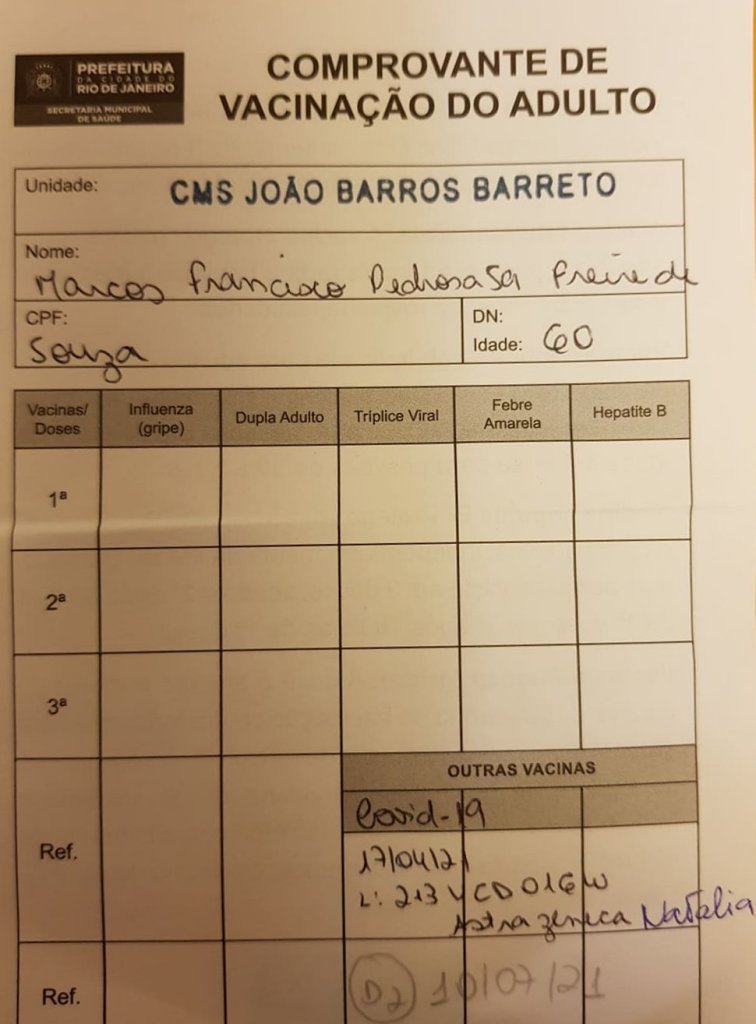 PREFEITURA
DA CIDADE DO
RIO DE JANEIRO
SECRETARIA MUNICIPAL
DE SAÚDE
COMPROVANTE DE
VACINAÇÃO DO ADULTO
Unidade: CMS JOÃO BARROS BARRETO
Nome:
Marcos Francisco Pedrosa Sá Freire de
CPF:
Souza
DN:
Idade: 60
Vacinas/ Doses Influenza (gripe) Dupla Adulto Triplice Viral Febre Amarela Hepatite B
1ª
2ª
3ª
OUTRAS VACINAS
Covid-19
Ref.
17/04/21
L: 213VCD016W
Astrazeneca Natalia
Ref.
D2 10/07/21